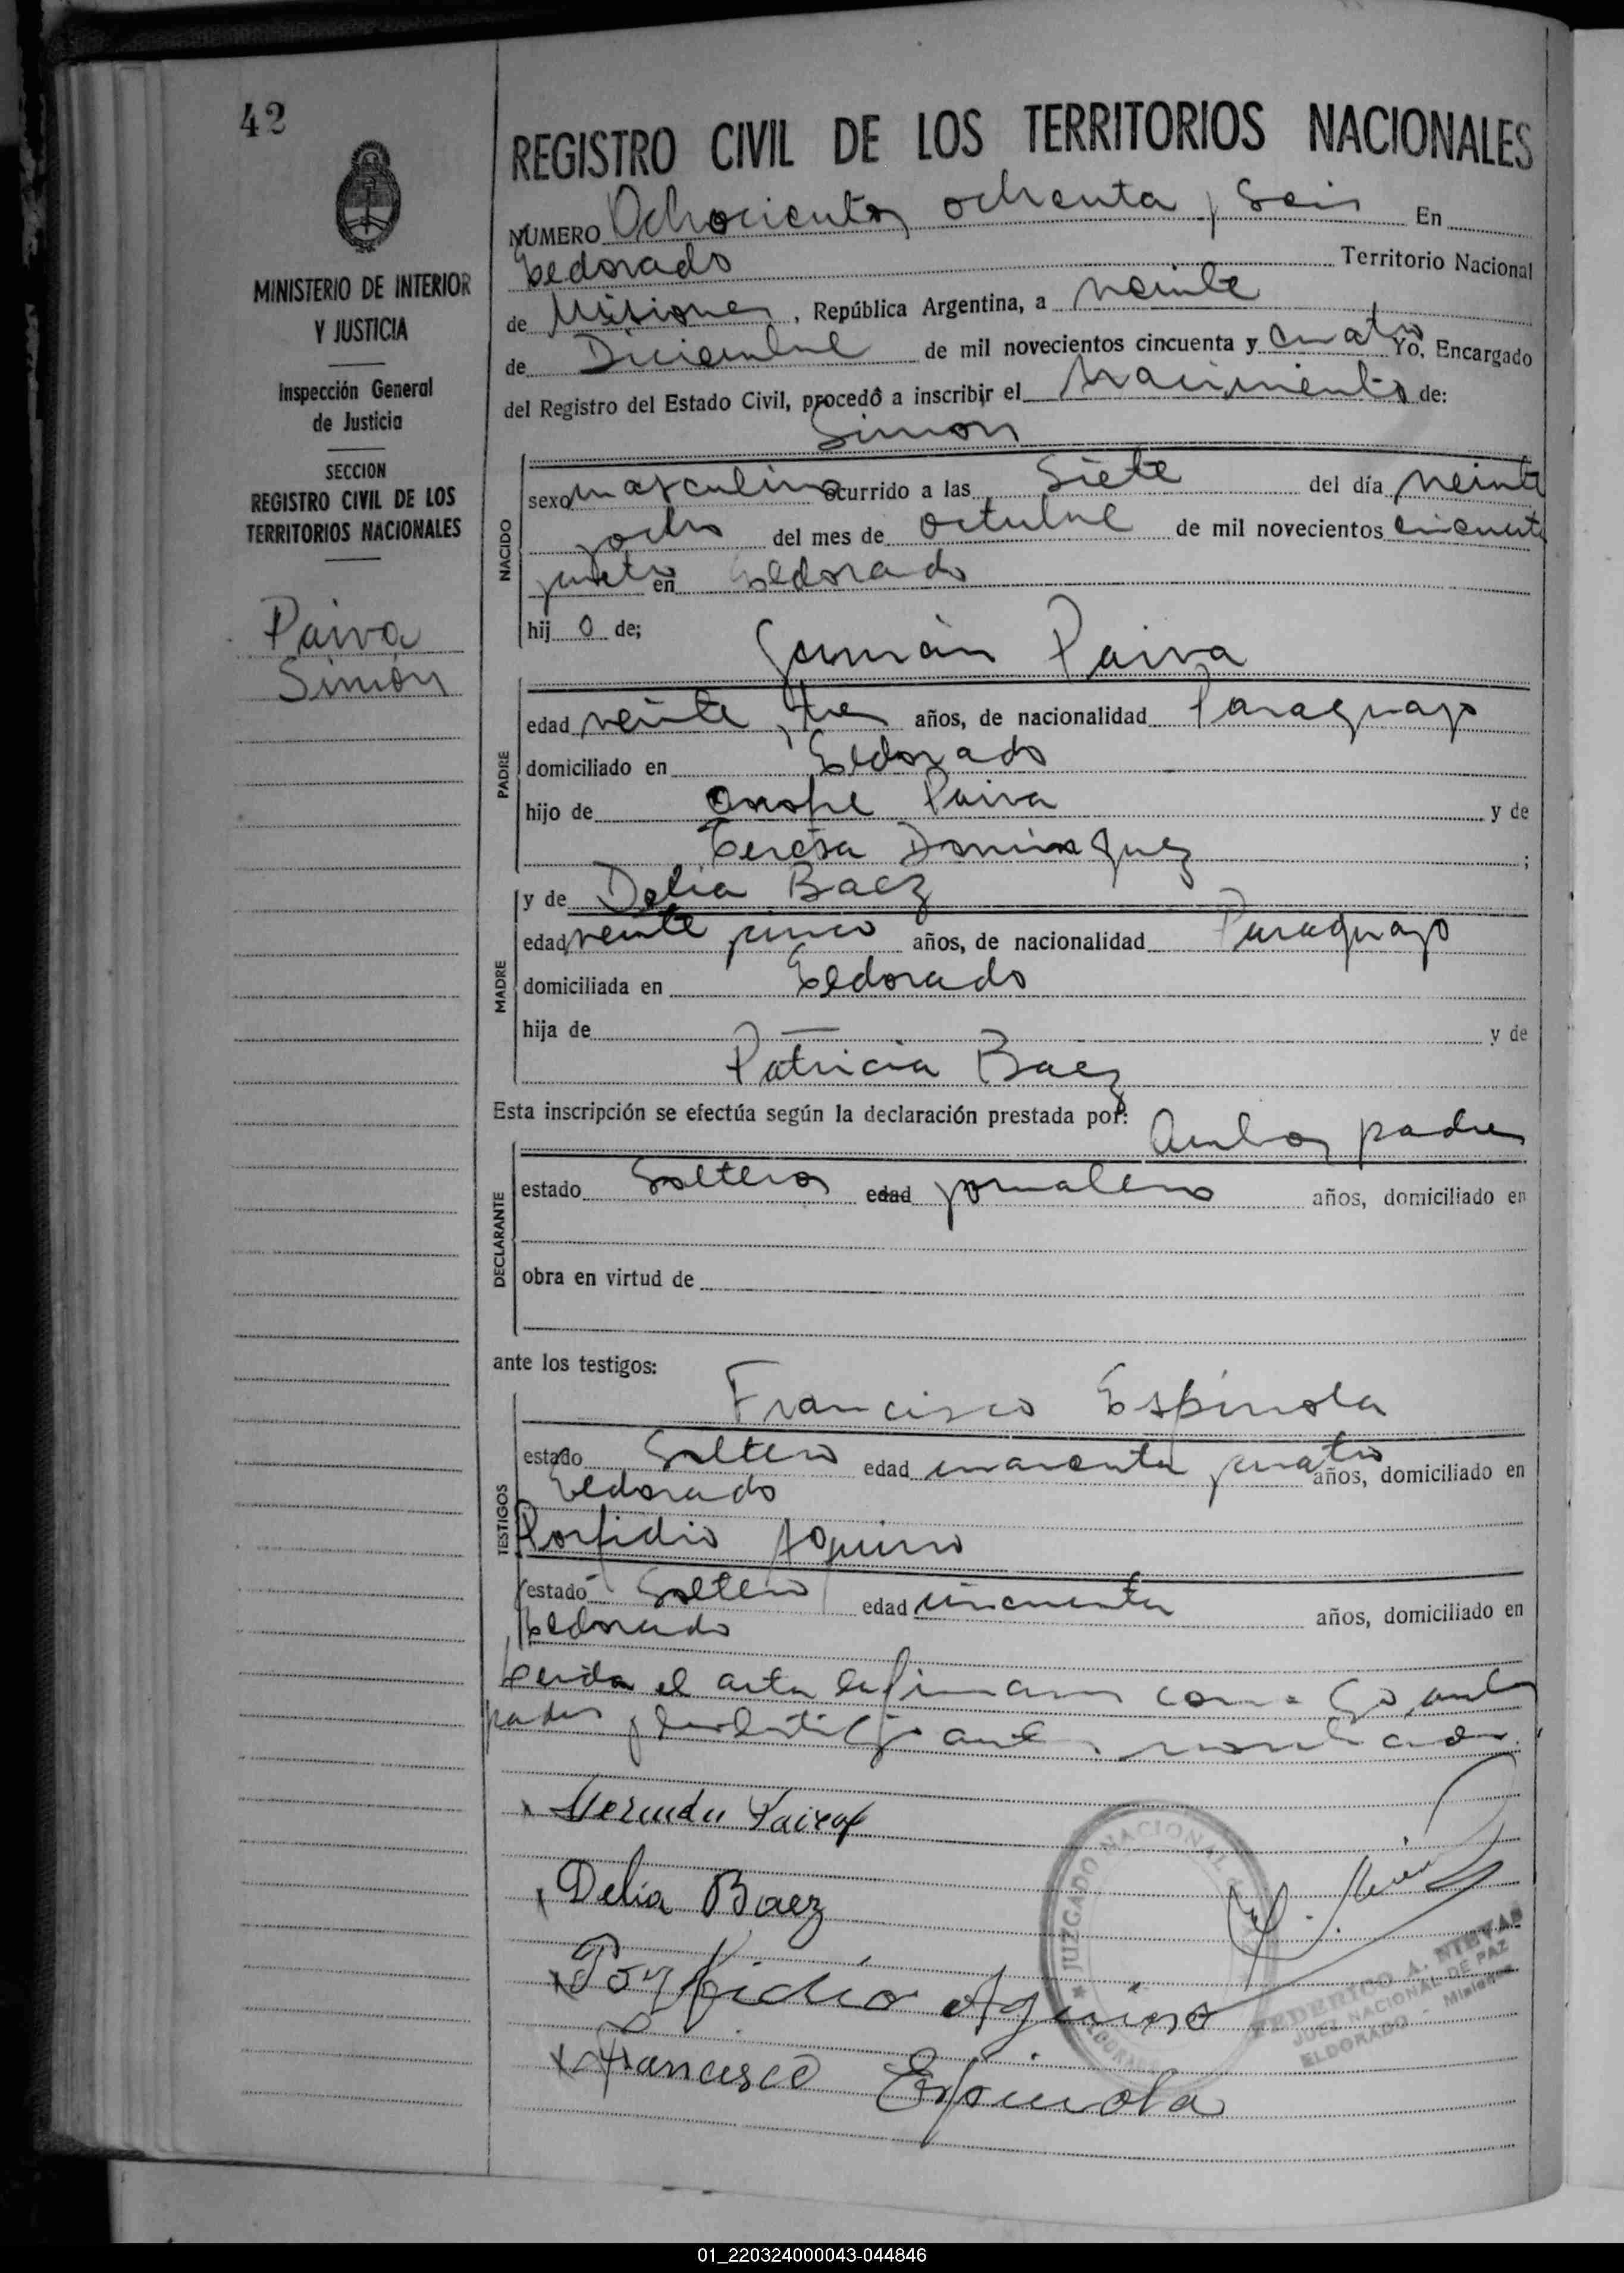 42
REGISTRO CIVIL DE LOS TERRITORIOS NACIONALES
MINISTERIO DE INTERIOR
Y JUSTICIA
Inspección General
de Justicia
SECCION
REGISTRO CIVIL DE LOS
TERRITORIOS NACIONALES
Paiva
Simón
NUMERO Ochocientos ochenta y Seis En
Eldorado Territorio Nacional
de Misiones, República Argentina, a veinte
de Diciembre de mil novecientos cincuenta y cuatro Yo, Encargado
del Registro del Estado Civil, procedo a inscribir el nacimiento de:
Simon
NACIDO
sexo masculino ocurrido a las Siete del día veinte
y ocho del mes de octubre de mil novecientos cincuenta
en Eldorado
hij o de;
Germán Paiva
PADRE
edad veinte y tres años, de nacionalidad Paraguayo
domiciliado en Eldorado
hijo de Onofre Paiva y de
Teresa Dominguez ;
MADRE
y de Delia Baez
edad veinte y cinco años, de nacionalidad Paraguayo
domiciliada en Eldorado
hija de — y de
Patricia Baez
Esta inscripción se efectúa según la declaración prestada por: Ambos padres
DECLARANTE
estado Solteros edad jornalero años, domiciliado en
obra en virtud de
ante los testigos:
TESTIGOS
Francisco Espinola
estado Soltero edad cuarenta y cuatro años, domiciliado en
Eldorado
Porfidio Aquino
estado Soltero edad cincuenta años, domiciliado en
Eldorado
Leida el acta la firman conmigo ambos
padres y los testigos antes nombrados.
Delia Baez
Porfidio Aquino
Francisco Espinola
JUZGADO NACIONAL
ELDORADO
FEDERICO A. NIEVAS
JUEZ NACIONAL DE PAZ
ELDORADO - Misiones
01_220324000043-044846